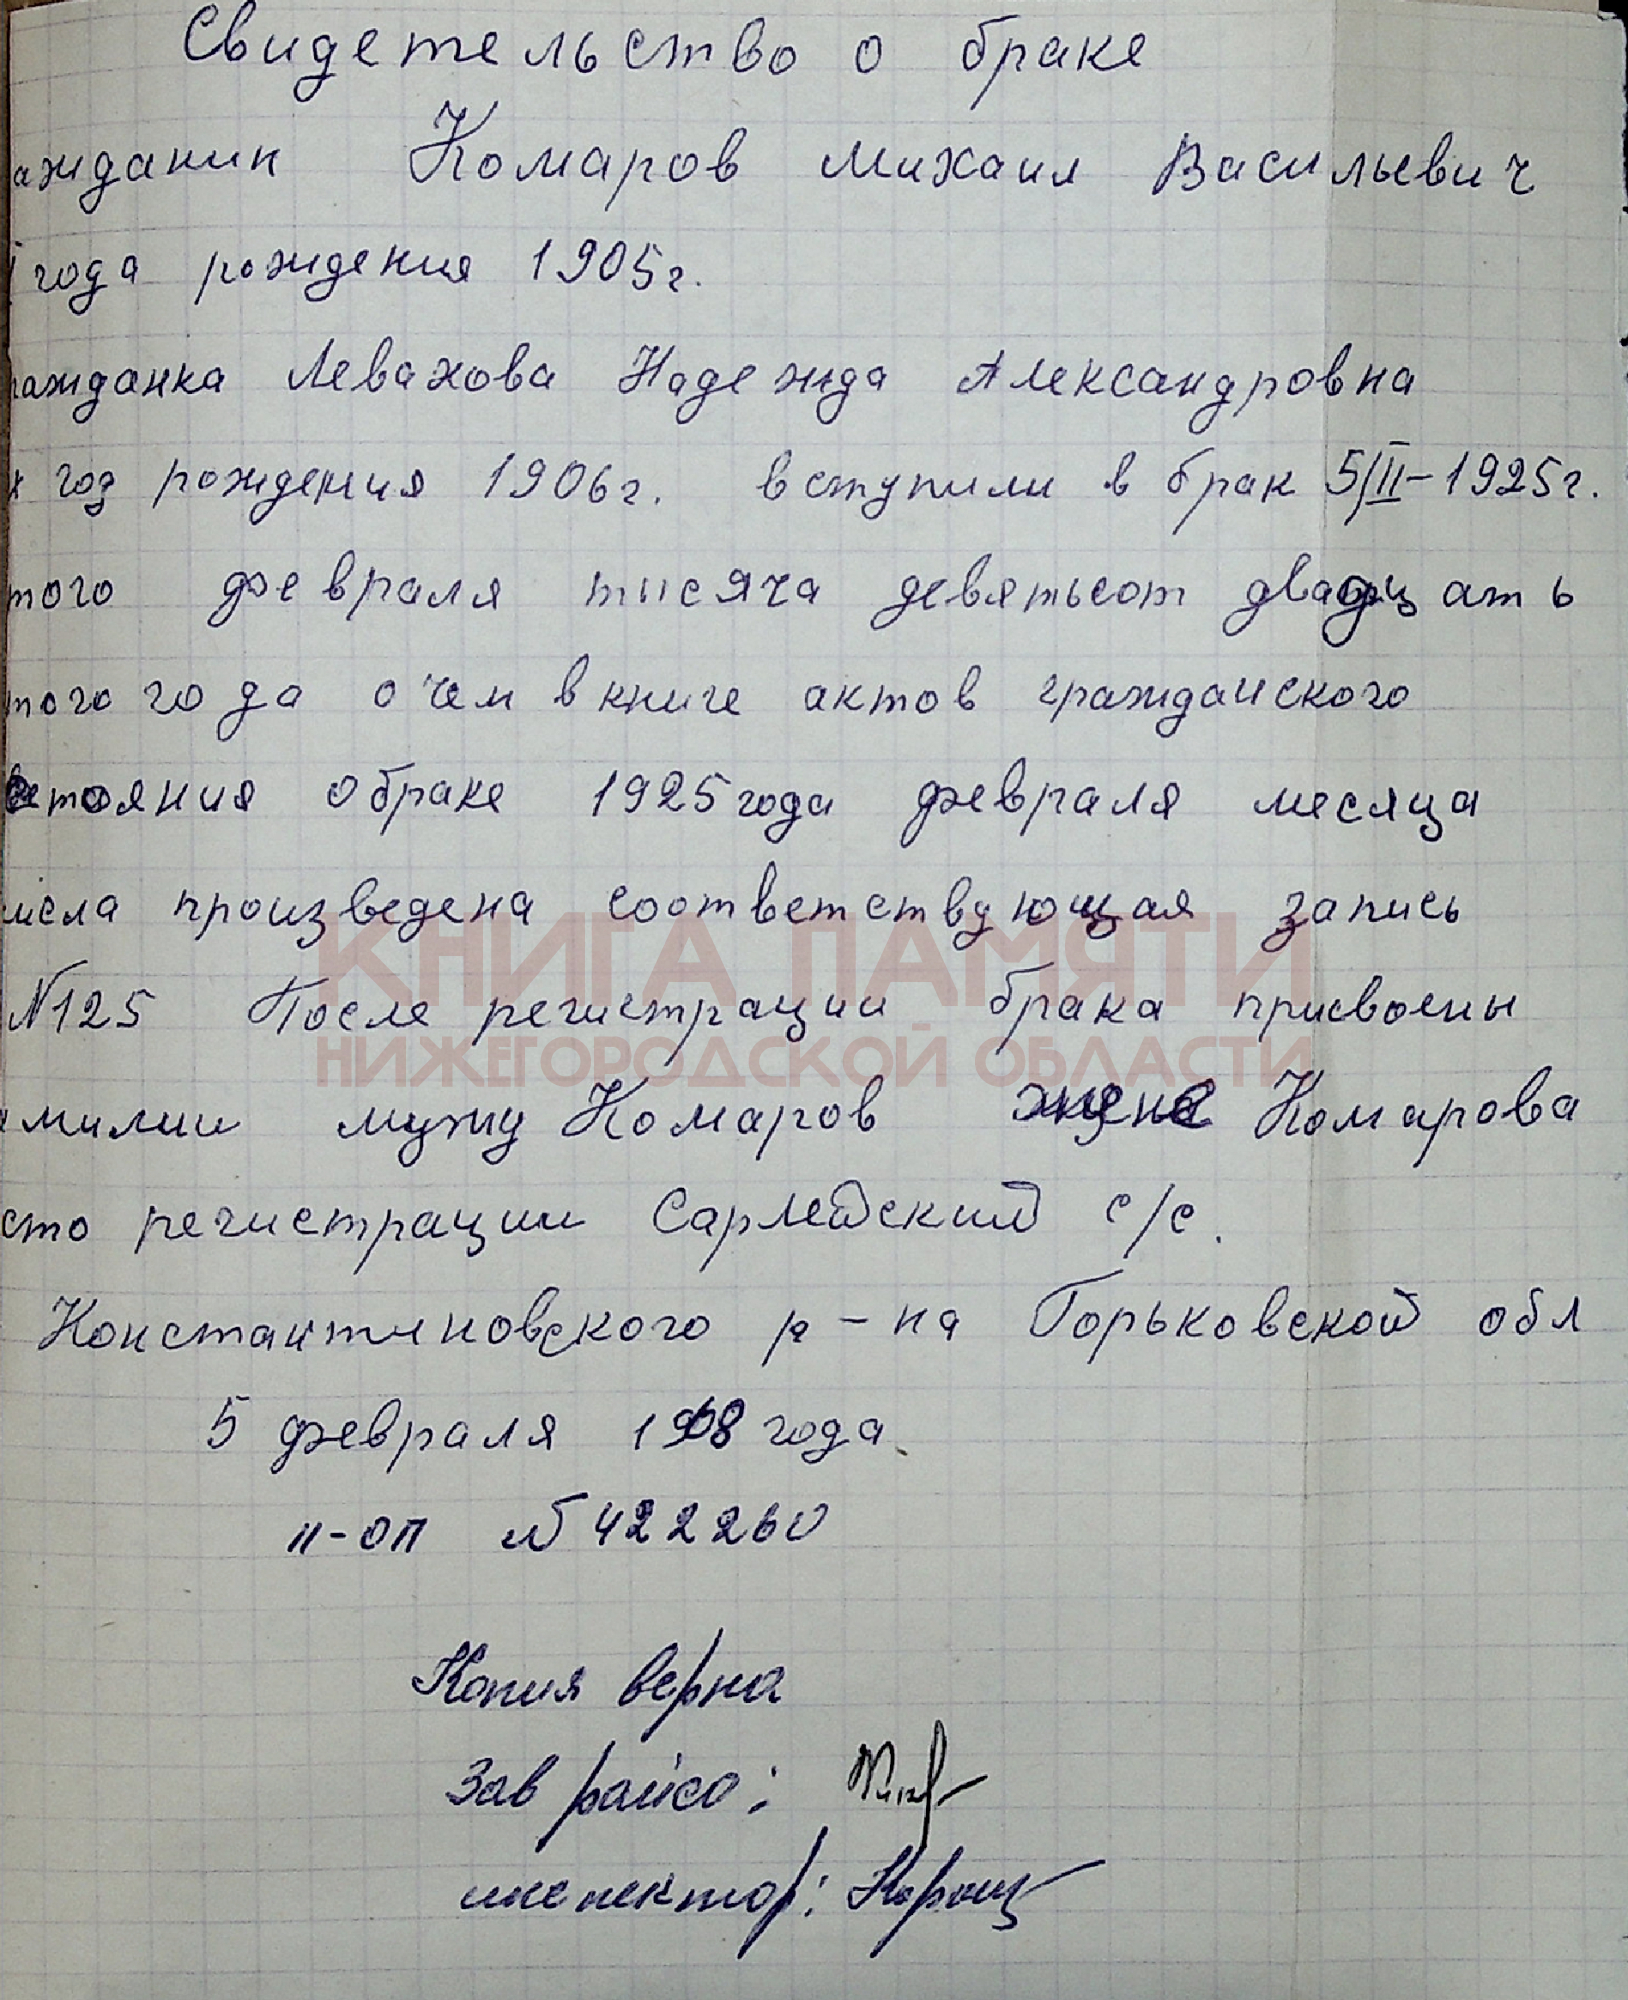 Свидетельство о браке
ажданин Комаров Михаил Васильевич
года рождения 1905г.
ражданка Левахова Надежда Александровна
х год рождения 1906г. вступили в брак 5/II-1925г.
того февраля тысяча девятьсот двадцать
того года о чем в книге актов гражданского
стояния о браке 1925 года февраля месяца
числа произведена соответствующая запись
КНИГА ПАМЯТИ
N125 После регистрации брака присвоены
НИЖЕГОРОДСКОЙ ОБЛАСТИ
милии мужу Комаров жене Комарова
сто регистрации Сарлейский с/с.
Константиновского р-на Горьковской обл
5 февраля 1968 года
II-ОП N422260
Копия верна
Зав райсо:
инспектор: